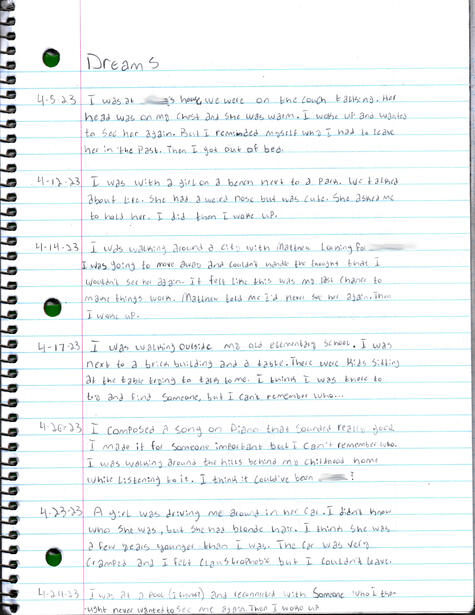 Dreams
4-5-23 I was at 's house, we were on the couch talking. Her
head was on my chest and she was warm. I woke up and wanted
to see her again. But I reminded myself why I had to leave
her in the past. Then I got out of bed.
4-12-23 I was with a girl on a bench next to a park. We talked
about life. She had a weird nose but was cute. She asked me
to hold her. I did then I woke up.
4-14-23 I was walking around a city with Matthew looking for
I was going to move away and couldn't handle the thought that I
wouldn't see her again. It felt like this was my last chance to
make things work. Matthew told me I'd never see her again. Then
I woke up.
4-17-23 I was walking outside my old elementary school. I was
next to a brick building and a table. There were kids sitting
at the table trying to talk to me. I think I was there to
try and find someone, but I can't remember who...
4-20-23 I composed a song on piano that sounded really good.
I made it for someone important but I can't remember who.
I was walking around the hills behind my childhood home
while listening to it. I think it could've been ?
4-23-23 A girl was driving me around in her car. I didn't know
who she was, but she had blonde hair. I think she was
a few years younger than I was. The car was very
cramped and I felt claustrophobic but I couldn't leave.
4-24-23 I was at a pool (I think) and reconnected with someone who I tho-
ught never wanted to see me again. Then I woke up